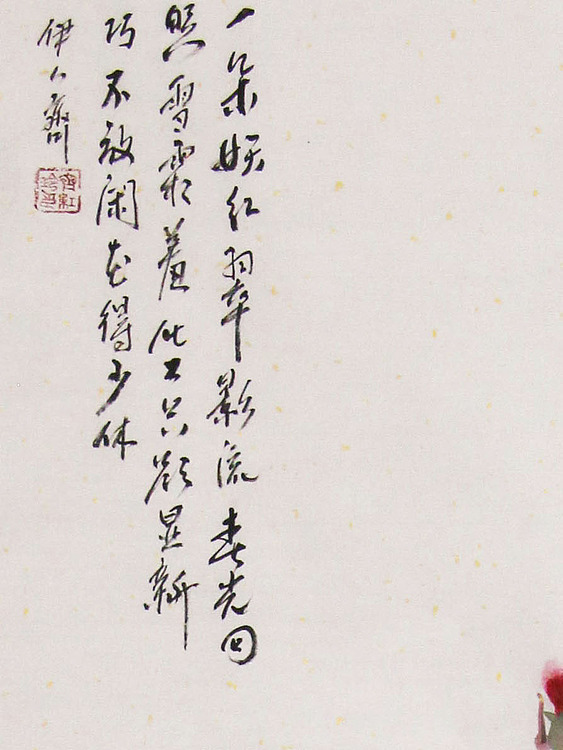 一朵妖红翠影流春光回
照雪霜羞化工只欲呈新
巧不放闲花得少休
伊人齋